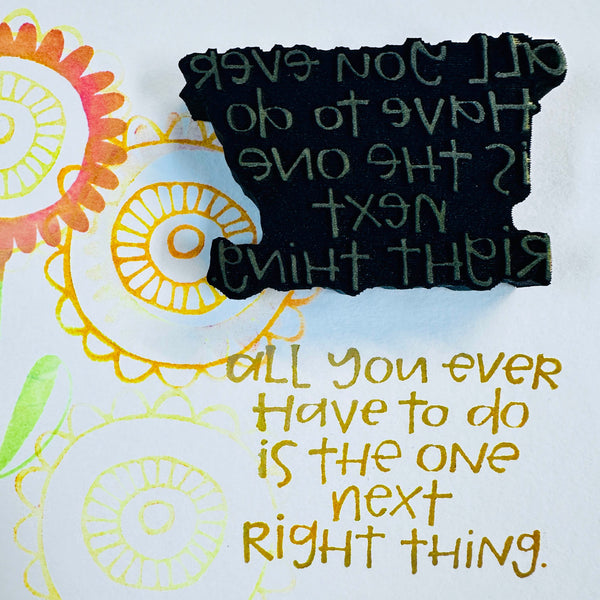 all you ever
Have to do
is the one
next
Right thing
all you ever
Have to do
is the one
next
Right thing.